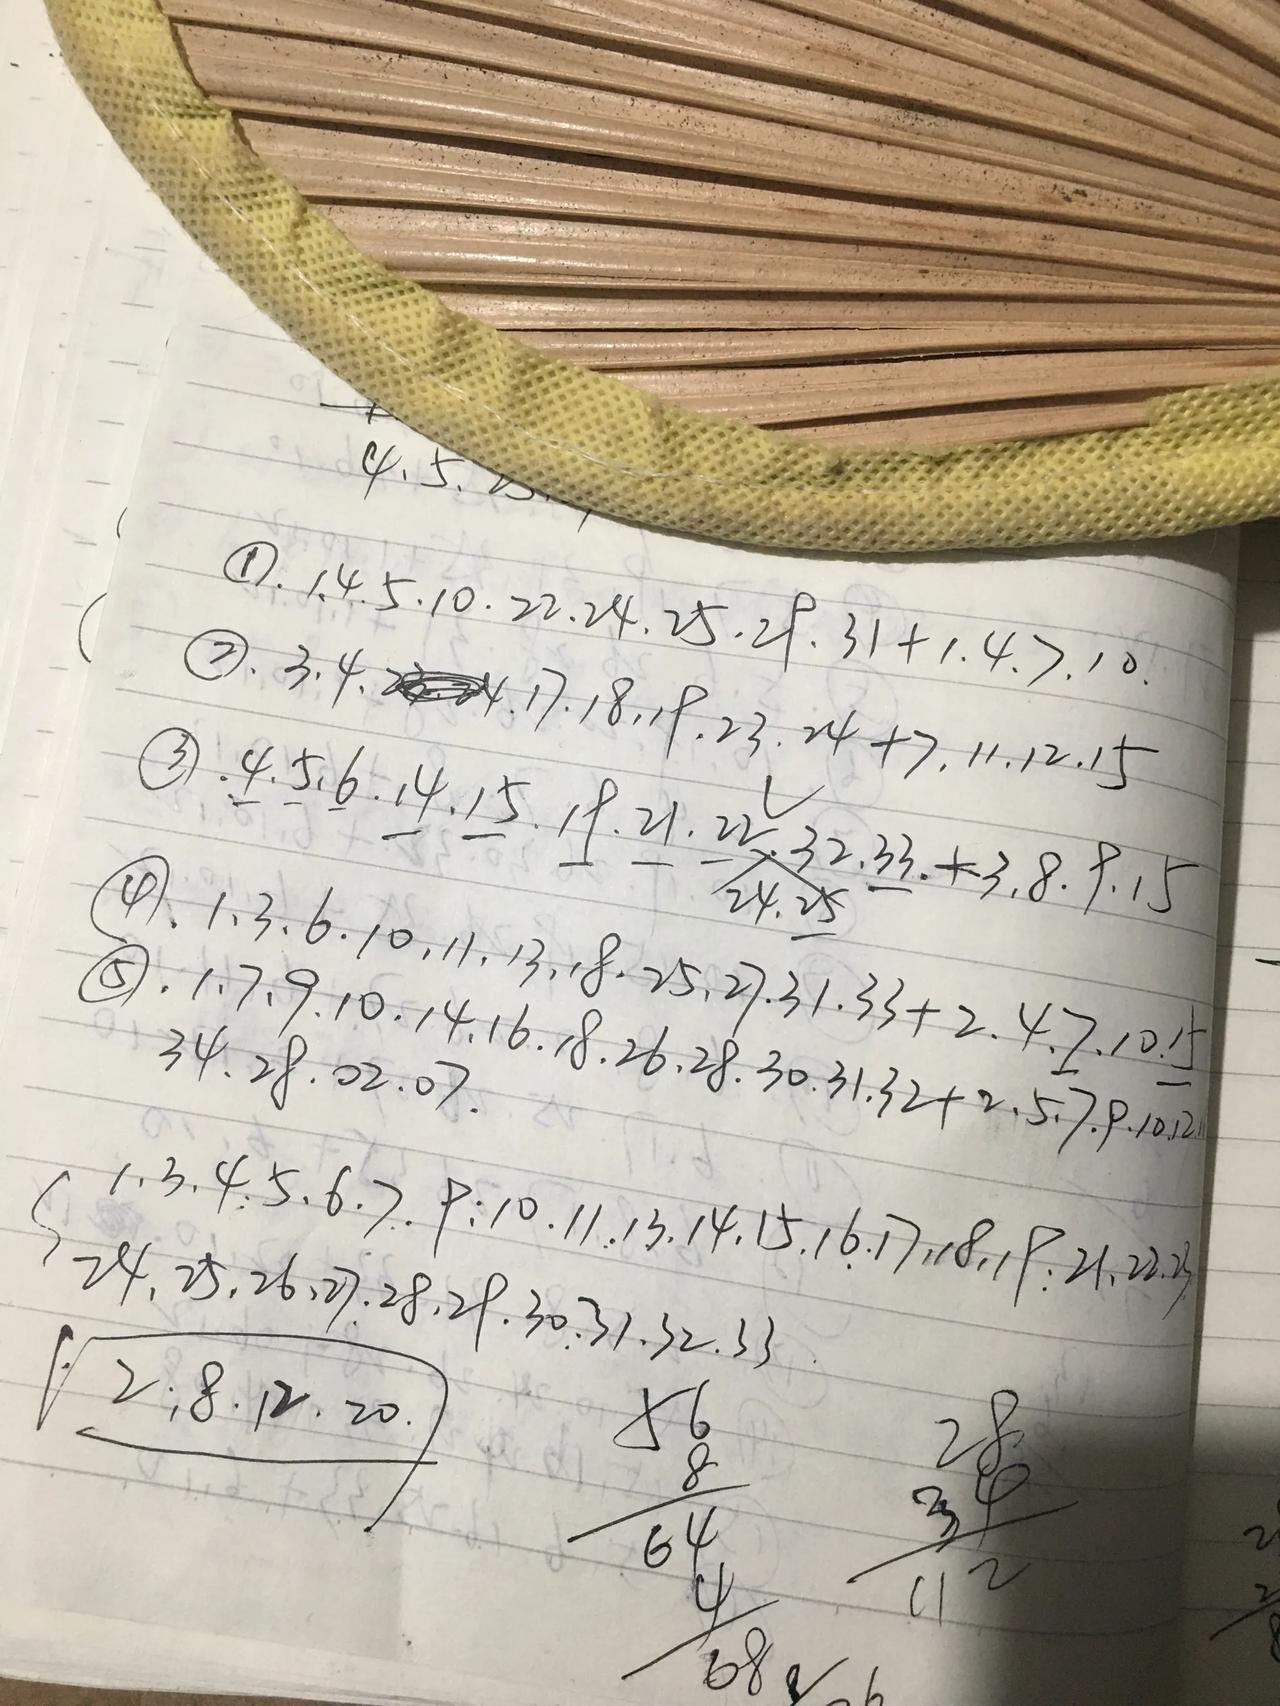 4.5.25.
①.1.4.5.10.22.24.25.29.31+1.4.7.10.
②.3.4.17.18.19.23.24+7.11.12.15
③.4.5.6.14.15.19.21.22.32.33.+3.8.9.15
24.25
④.1.3.6.10.11.13.18.25.27.31.33+2.4.7.10.15
⑤.1.7.9.10.14.16.18.26.28.30.31.32+2.5.7.9.10.12
34.28.02.07.
1.3.4.5.6.7.9.10.11.13.14.15.16.17.18.19.21.22.23
24.25.26.27.28.29.30.31.32.33.
2.8.12.20.
56
8
64
4
68
28
34
112